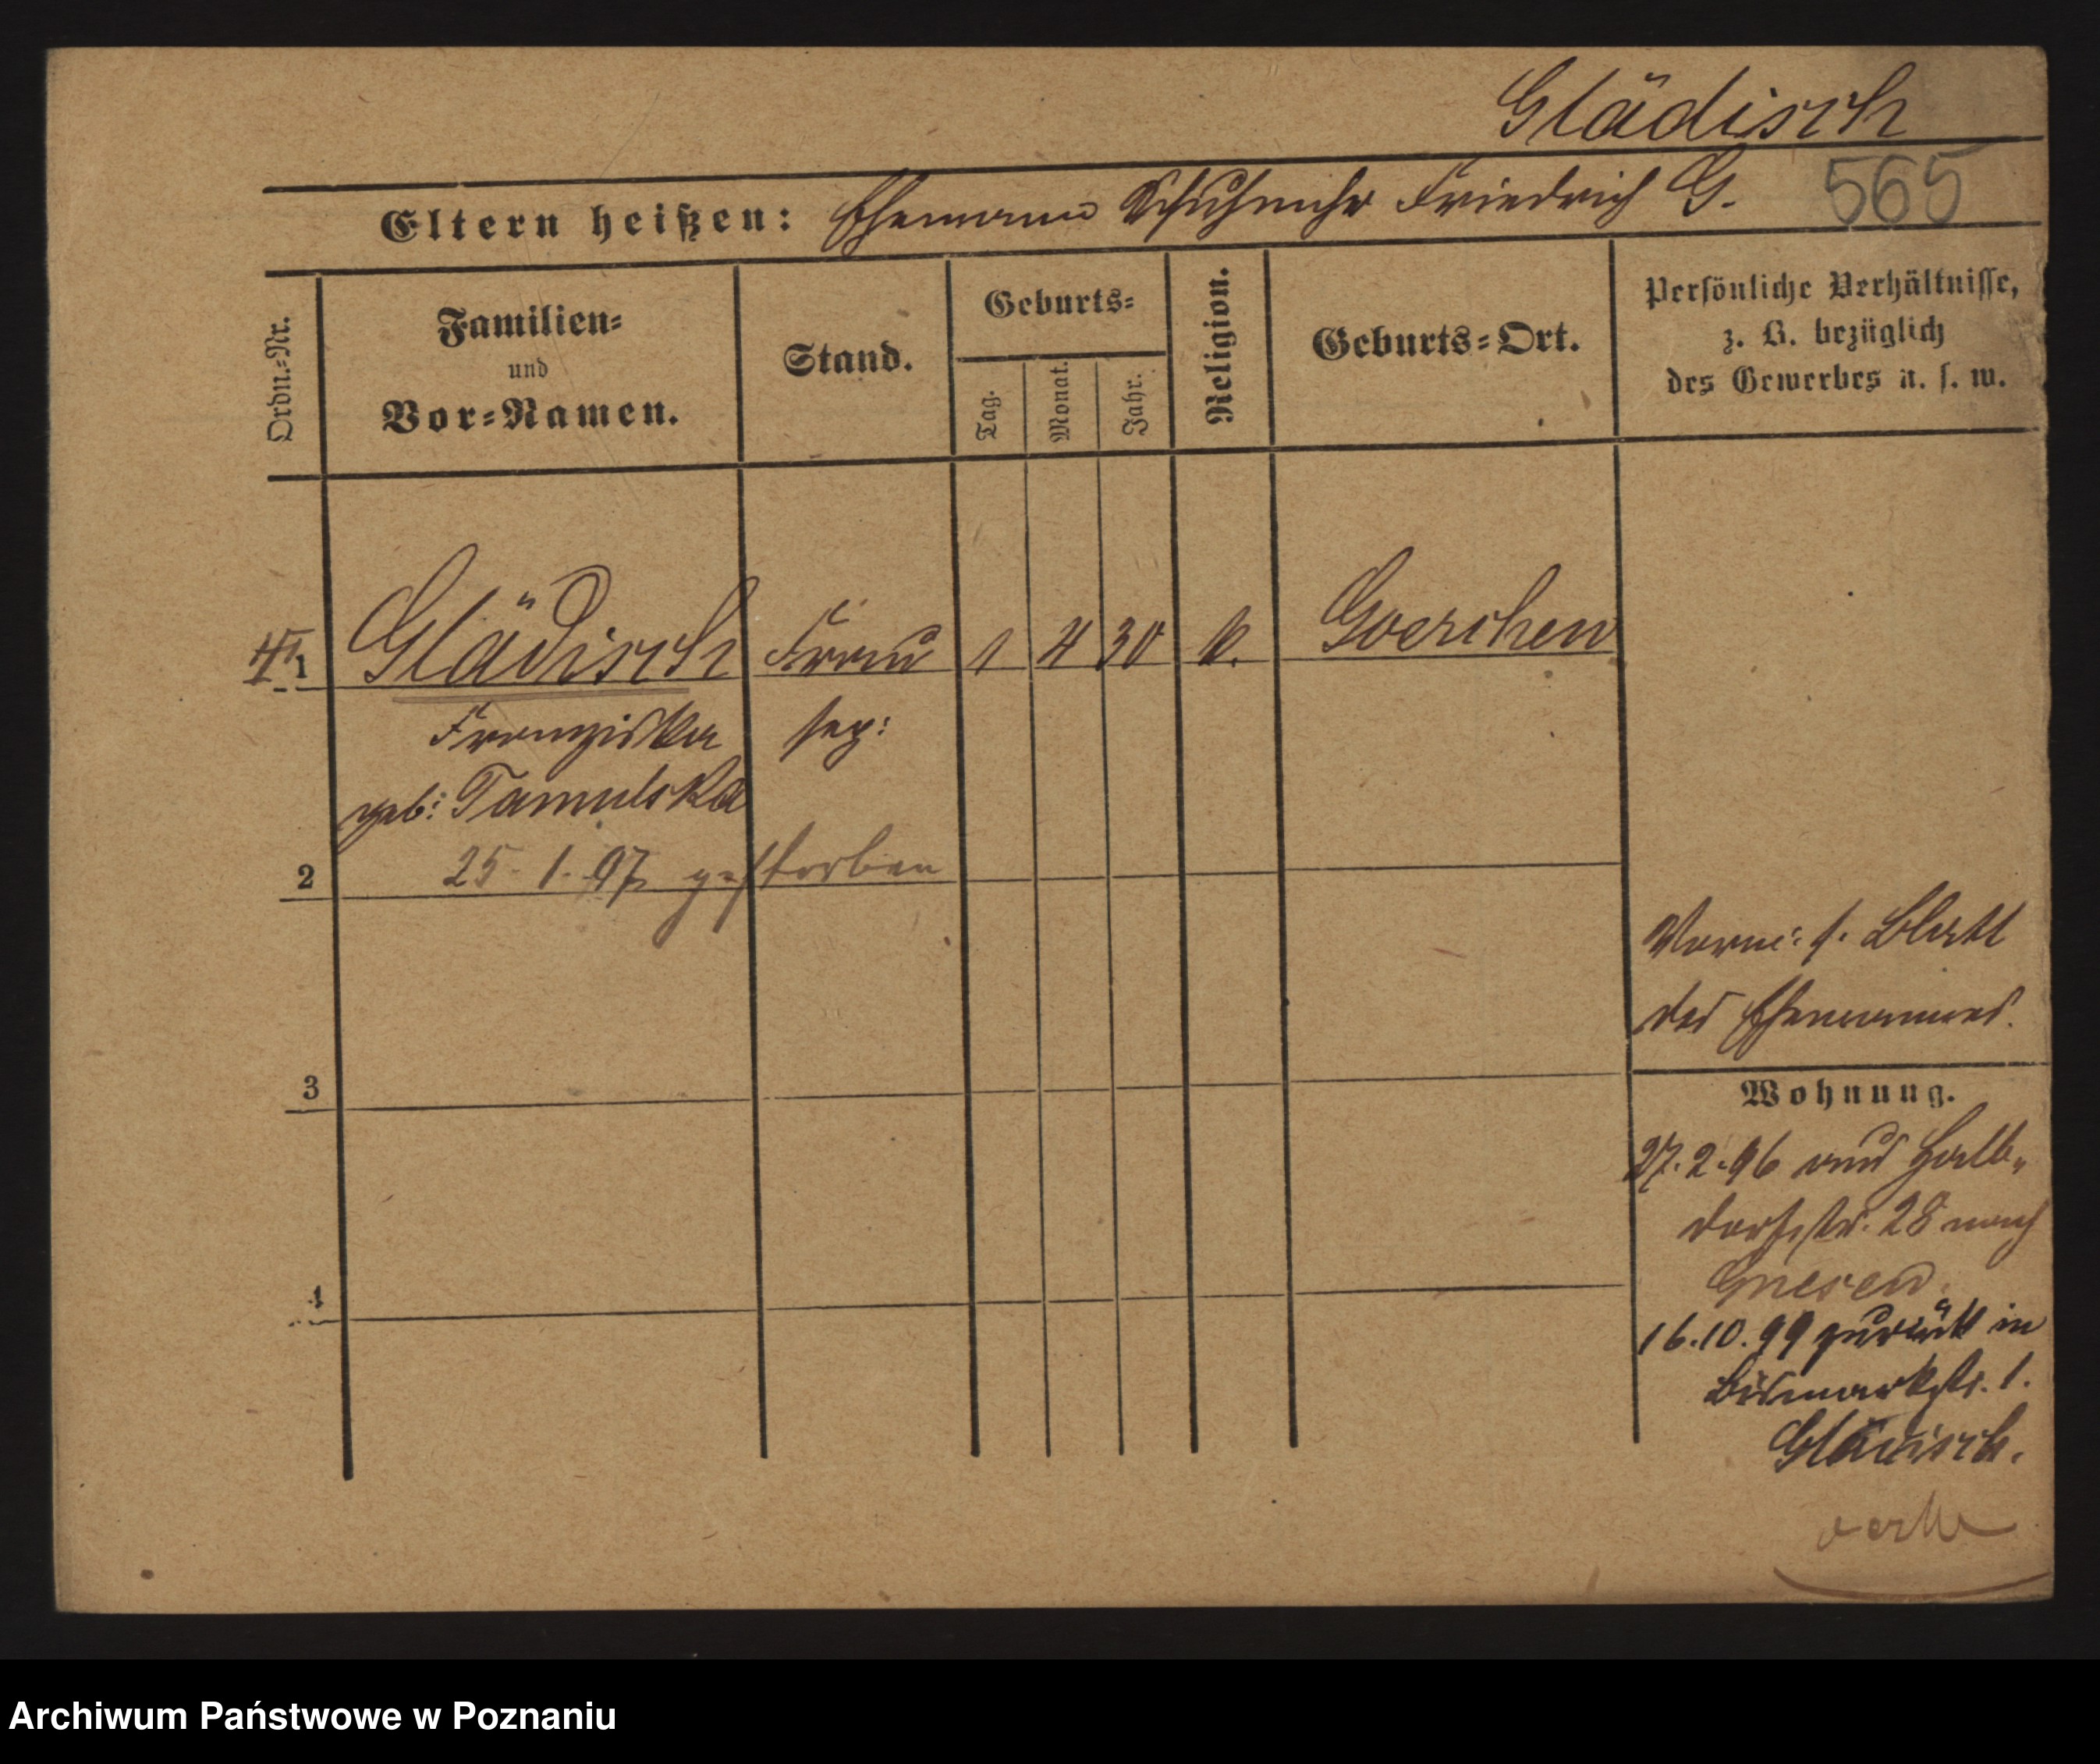 Glädisch
Eltern heißen: Ehemann Schuhmchr Friedrich G. 565
Ordn.-Nr.
Familien-
und
Vor-Namen.
Stand.
Geburts-
Tag.
Monat.
Jahr.
Religion.
Geburts-Ort.
Persönliche Verhältnisse,
z. B. bezüglich
des Gewerbes u. s. w.
1 Glädisch Frau 1 4 30 k. Goerchen
Franziska sep:
geb: Tamulska
2 25. 1. 97 gestorben
Vorne: s. Blatt
des Ehemannes.
3
Wohnung.
27.2.96 aus Halb-
dorfstr. 28 nach
Gnesen.
4
16.10.99 zurück in
Bismarkstr. 1.
Glädisch.
Archiwum Państwowe w Poznaniu